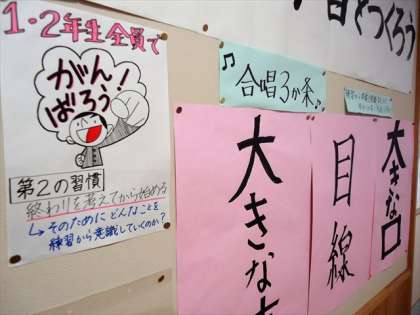 1・2年生全員で
がん
ばろう!
第2の習慣
終わりを考えてから始める
↳そのためにどんなことを
練習から意識していくのか?
とつくろう
♫合唱3か条♪
大きな口
目線
大きな